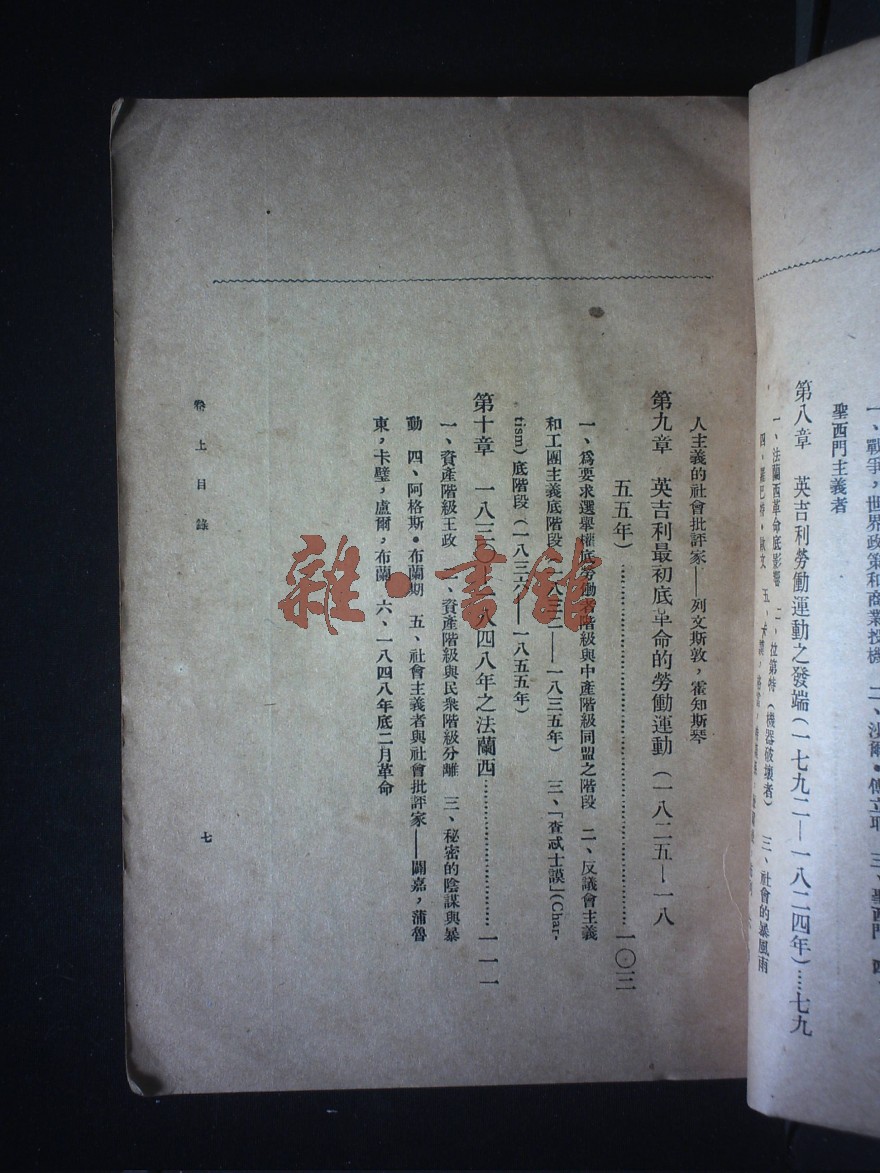 一、戰爭，世界政策和商業投機 二、沙爾•傅立耶 三、聖西門
聖西門主義者
第八章 英吉利勞働運動之發端(一七九二—一八二四年)……七九
一、法蘭西革命底影響 二、拉第特(機器破壞者) 三、社會的暴風雨
四、羅巴特•歐文 五、
人主義的社會批評家——列文斯敦，霍知斯琴
第九章 英吉利最初底革命的勞働運動(一八二五—一八
五五年)……一〇三
一、爲要求選舉權底勞働者階級與中產階級同盟之階段 二、反議會主義
和工團主義底階段(一八三二——一八三五年) 三、「查忒士謨」(Char-
tism)底階段(一八三六——一八五五年)
第十章 一八三〇—一八四八年之法蘭西……一一一
一、資產階級王政 二、資產階級與民衆階級分離 三、秘密的陰謀與暴
動 四、阿格斯•布蘭期 五、社會主義者與社會批評家——闢嘉，蒲魯
東，卡璧，盧爾，布蘭 六、一八四八年底二月革命
卷上目錄
七
雜•書館